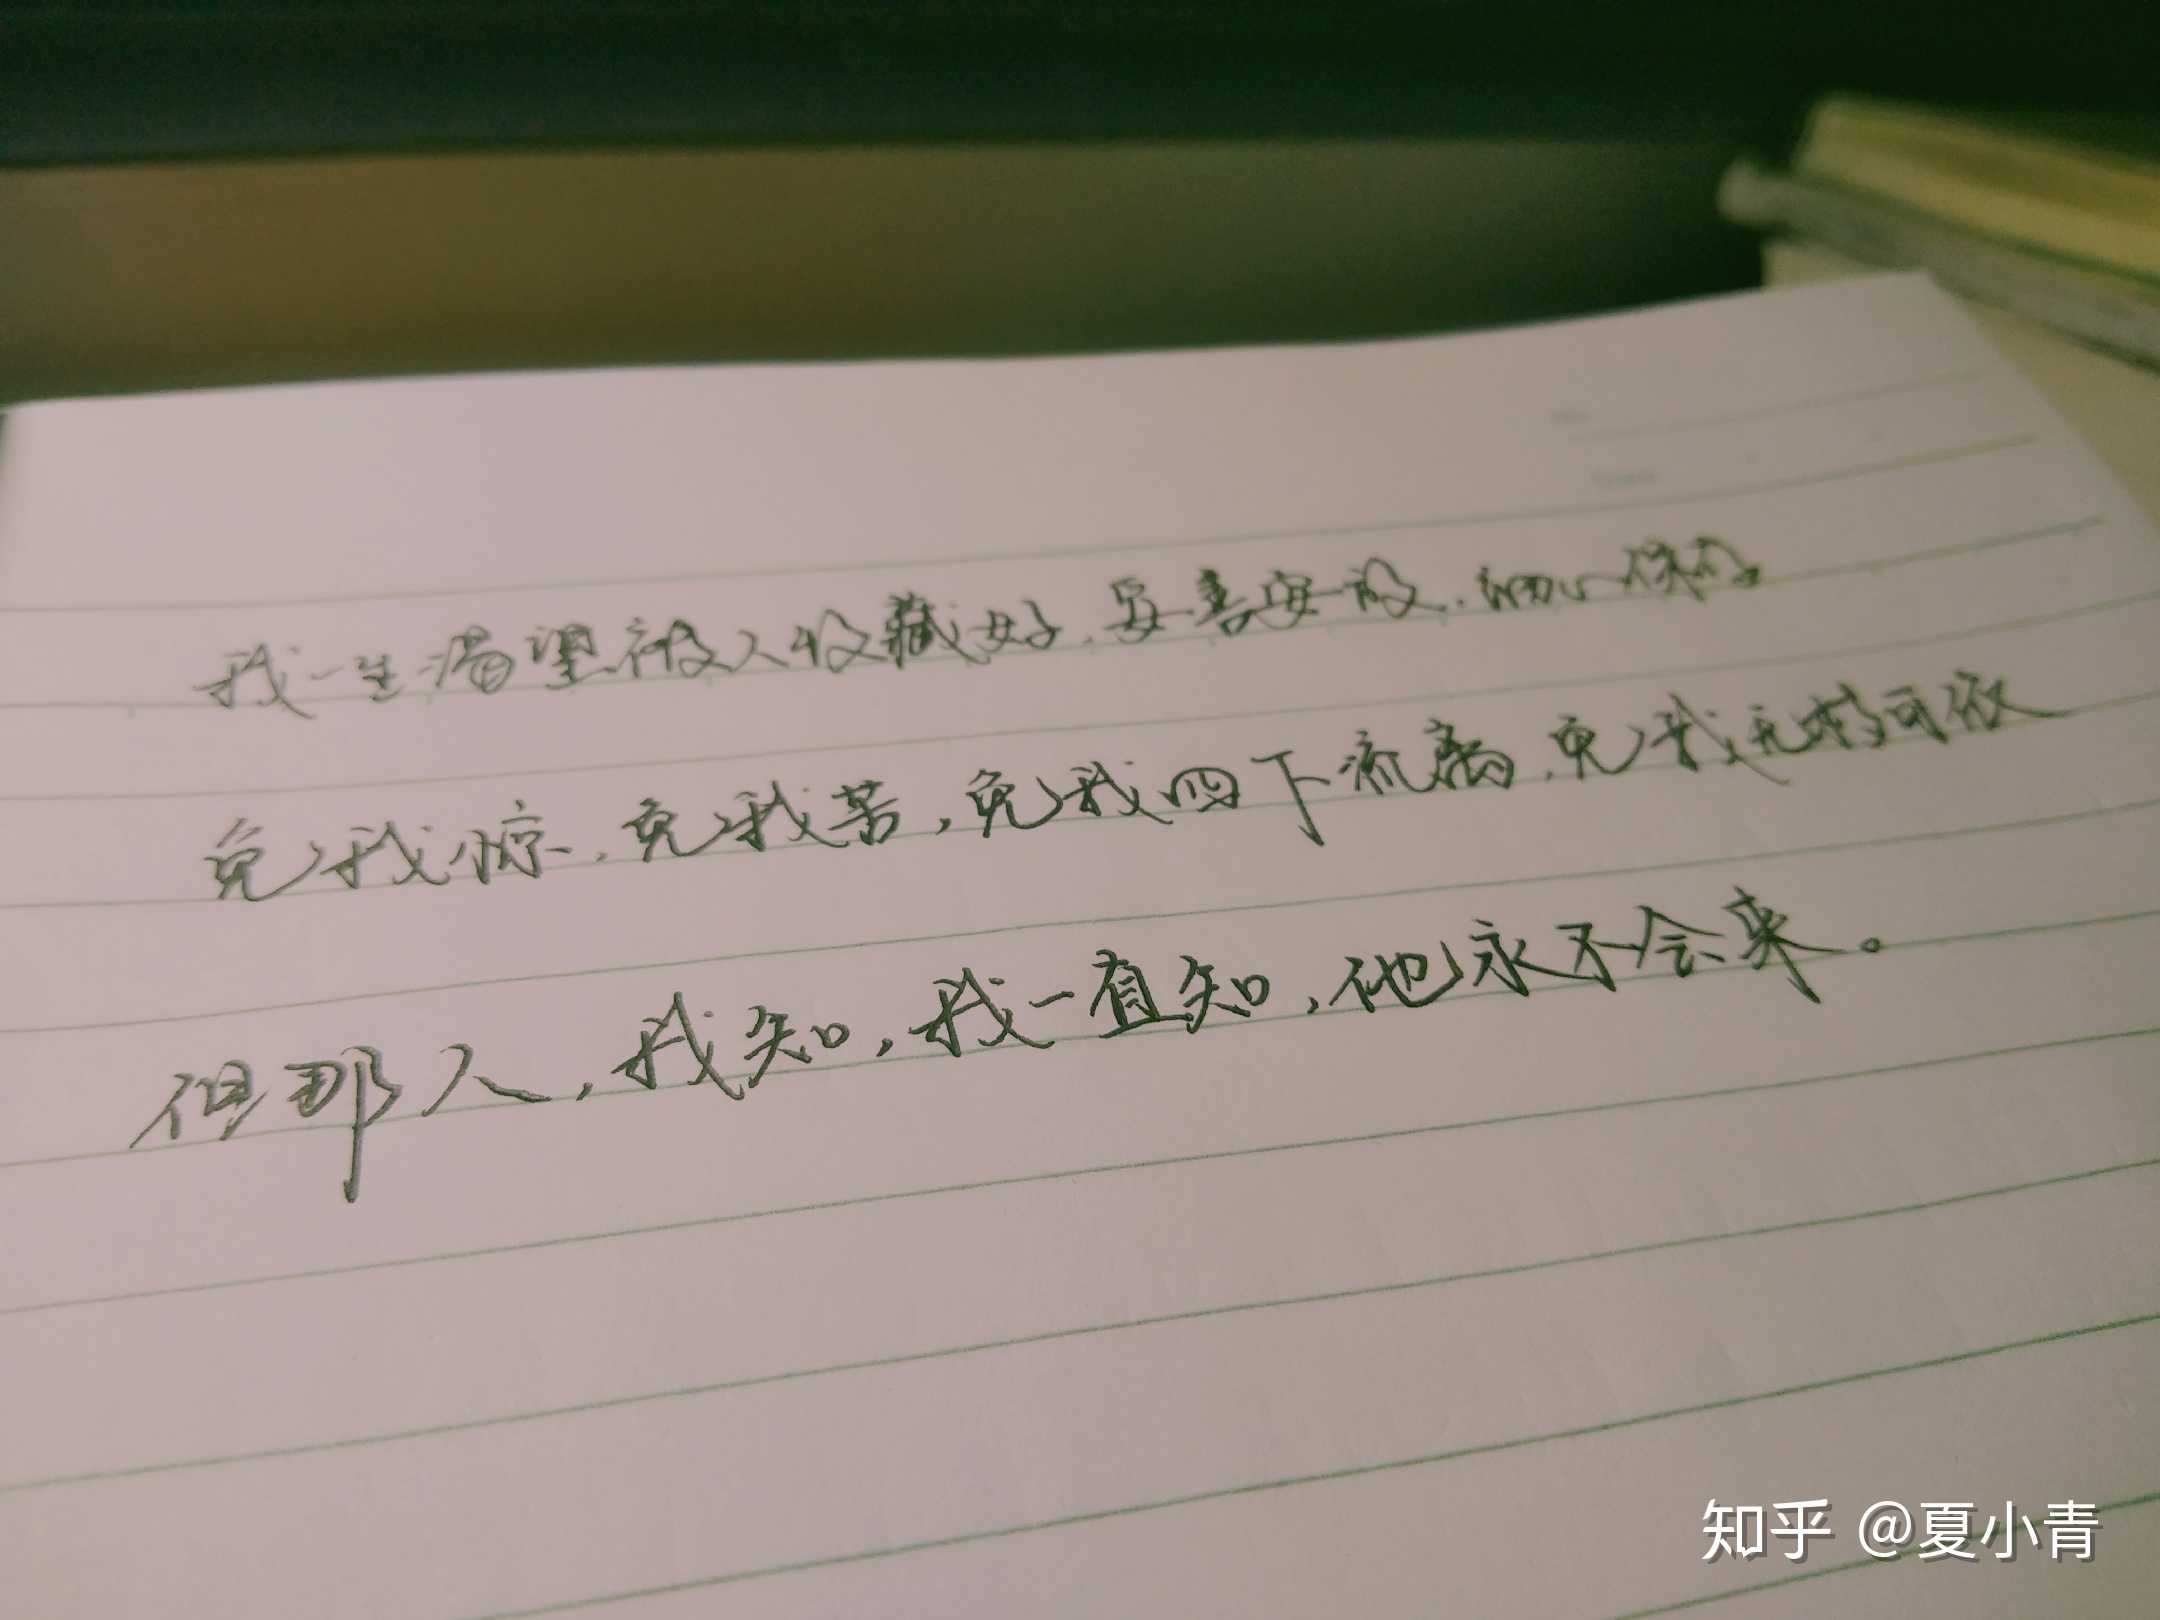 我一生渴望被人收藏好，妥善安放，细心保存。
免我惊，免我苦，免我四下流离，免我无枝可依
但那人，我知，我一直知，他永不会来。
知乎 @夏小青